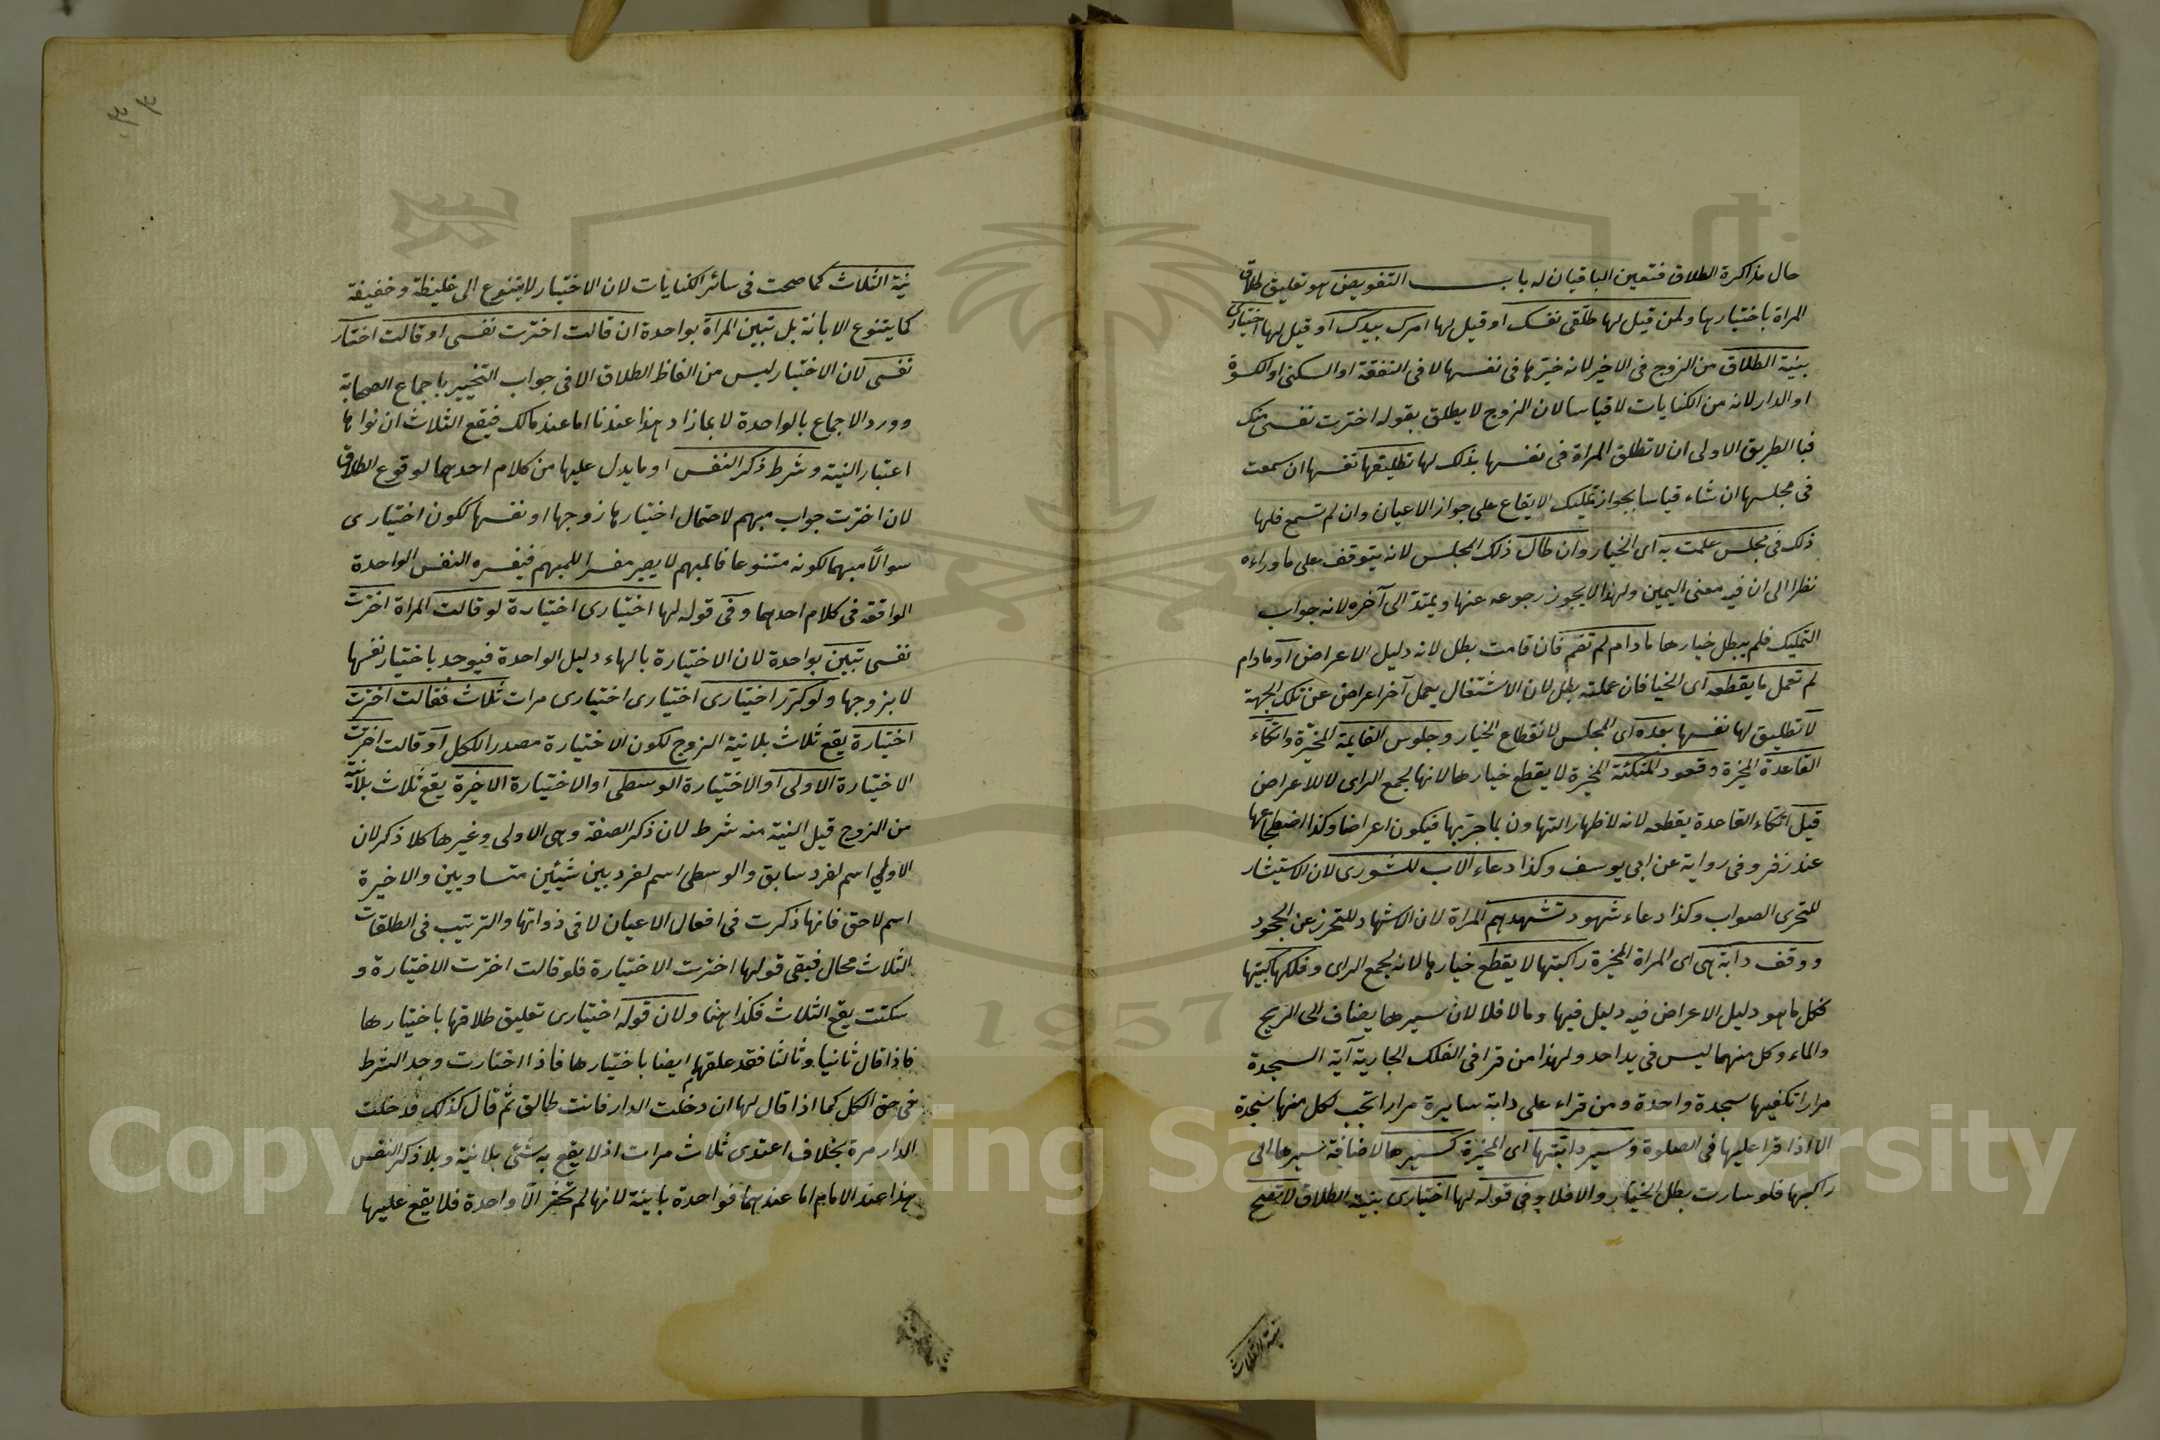 حال مذاكرة الطلاق فتعين الباقيان له باب التفويض هو تعليق طلاق
المراة باختيارها ولمن قيل لها طلقى نفسك او قيل لها امرك بيدك او قيل لها اختيارى
بنية الطلاق من الزوج فى الاخير لانه خيرها فى نفسها لا فى النفقة او السكنى او الكسوة
او الدار لانه من الكنايات لا قياسا لان الزوج لا يطلق بقوله اخترت نفسى منك
فبا الطريق الاولى ان لا تطلق المراة فى نفسها بذلك لها تطليقها نفسها ان سمعت
فى مجلسها ان شاء قياسا بجواز تمليك الايقاع على جواز الاعيان وان لم تسمع فلها
ذلك فى مجلس علمت به اى الخيار وان طال ذلك المجلس لانه يتوقف على ما وراءه
نظرا الى ان فيه معنى اليمين ولهذا لا يجوز رجوعه عنها ويمتد الى آخره لانه جواب
التمليك فلم يبطل خيارها مادام لم تقم فان قامت بطل لانه دليل الاعراض او مادام
لم تعمل ما يقطعه اى الخيا فان عملته بطل لان الاشتغال بعمل آخر اعراض عن تلك الجهة
لا تطليق لها نفسها بعده اى المجلس لانقطاع الخيار وجلوس القايمة المخيرة واتكاء
القاعدة المخيرة وقعود المتكئة المخيرة لا يقطع خيارها لانها لجمع الراى لا للاعراض
قيل اتكاء القاعدة يقطعه لانه لاظهار التهاون بما جرى بها فيكون اعراضا وكذا اضطجاعها
عند زفر وفى رواية عن ابى يوسف وكذا دعاء الاب للشورى لان الاستيشار
للتحرى الصواب وكذا دعاء شهود تشهدهم المراة لان الاشهاد للتحرز عن الجحود
ووقف دابة هى اى المراة المخيرة راكبتها لا يقطع خيارها لانه لجمع الراى وفلكها كبيتها
فكل ما هو دليل الاعراض فيه دليل فيها وما لا فلا لان سيرها يضاف الى الريح
والماء وكل منهما ليس فى يد احد ولهذا من قرا فى الفلك الجارية آية السجدة
مرارا تكفيها سجدة واحدة ومن قراء على دابة سايرة مرارا تجب لكل منها سجدة
الا اذا قرا عليها فى الصلوة وسير دابتها اى المخيرة كسيرها لاضافة سيرها الى
راكبها فلو سارت بطل الخيار والا فلا وفى قوله لها اختيارى بنية الطلاق لا تصح
نية الثلاث
نية الثلاث كما صحت فى سائر الكنايات لان الاختيار لا يتنوع الى غليظة وخفيفة
كما يتنوع الابانة بل تبين المراة بواحدة ان قالت اخترت نفسى او قالت اختار
نفسى لان الاختيار ليس من الفاظ الطلاق الا فى جواب التخيير باجماع الصحابة
وورد الاجماع بالواحدة لا بما زاد هذا عندنا اما عند مالك فيقع الثلاث ان نواها
اعتبار النية وشرط ذكر النفس او ما يدل عليها من كلام احدهما لوقوع الطلاق
لان اخترت جواب مبهم لاحتمال اختيارها زوجها او نفسها ككون اختيارى
سوالا مبهما لكونه متنوعا فالمبهم لا يصير مفسرا للمبهم فيفسره النفس الواحدة
الواقعة فى كلام احدهما وفى قوله لها اختيارى اختيارة لو قالت المراة اخترت
نفسى تبين بواحدة لان الاختيارة بالهاء دليل الواحدة فيوجد باختيار نفسها
لا بزوجها ولو كرر اختيارى اختيارى اختيارى مرات ثلاث فقالت اخترت
اختيارة يقع ثلاث بلا نية الزوج لكون الاختيارة مصدر الكل او قالت اخترت
الاختيارة الاولى او الاختيارة الوسطى او الاختيارة الاخيرة يقع ثلاث بلا نية
من الزوج قيل النية منه شرط لان ذكر الصفة وهى الاولى وغيرها كلا ذكر لان
الاولى اسم لفرد سابق والوسطى اسم لفرد بين شيئين متساويين والاخيرة
اسم لاحق فانها ذكرت فى افعال الاعيان لا فى ذواتها والترتيب فى الطلقات
الثلاث محال فبقى قولها اخترت الاختيارة فلو قالت اخترت الاختيارة و
سكتت يقع الثلاث فكذا هنا ولان قوله اختيارى تعليق طلاقها باختيارها
فاذا قال ثانيا وثالثا فقد علقهم ايضا باختيارها فاذا اختارت وجد الشرط
فى حق الكل كما اذا قال لها ان دخلت الدار فانت طالق ثم قال كذلك فدخلت
الدار مرة بخلاف اعتدى ثلاث مرات اذ لا يقع به شئ بلا نية وبلا ذكر النفس
هذا عند الامام اما عندهما فواحدة باينة لانها لم تختر الا واحدة فلا يقع عليها
1957
Copyright © King Saud University